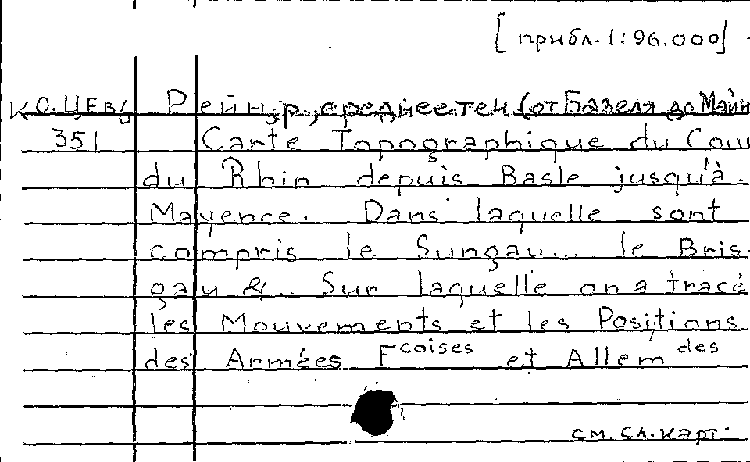 [прибл. 1:96.000]
К О.ЦЕв/6 Рейн, р., среднее теч. (от Базеля до Майн
351 Carte Topographique du Cour
du Rhin depuis Basle jusqu'à
Mayence. Dans laquelle sont
compris le Sungau... le Bris-
gau &.. Sur laquelle on a tracé
les Mouvements et les Positions
des Armées Fcoises et Allemdes
см. сл. карт.